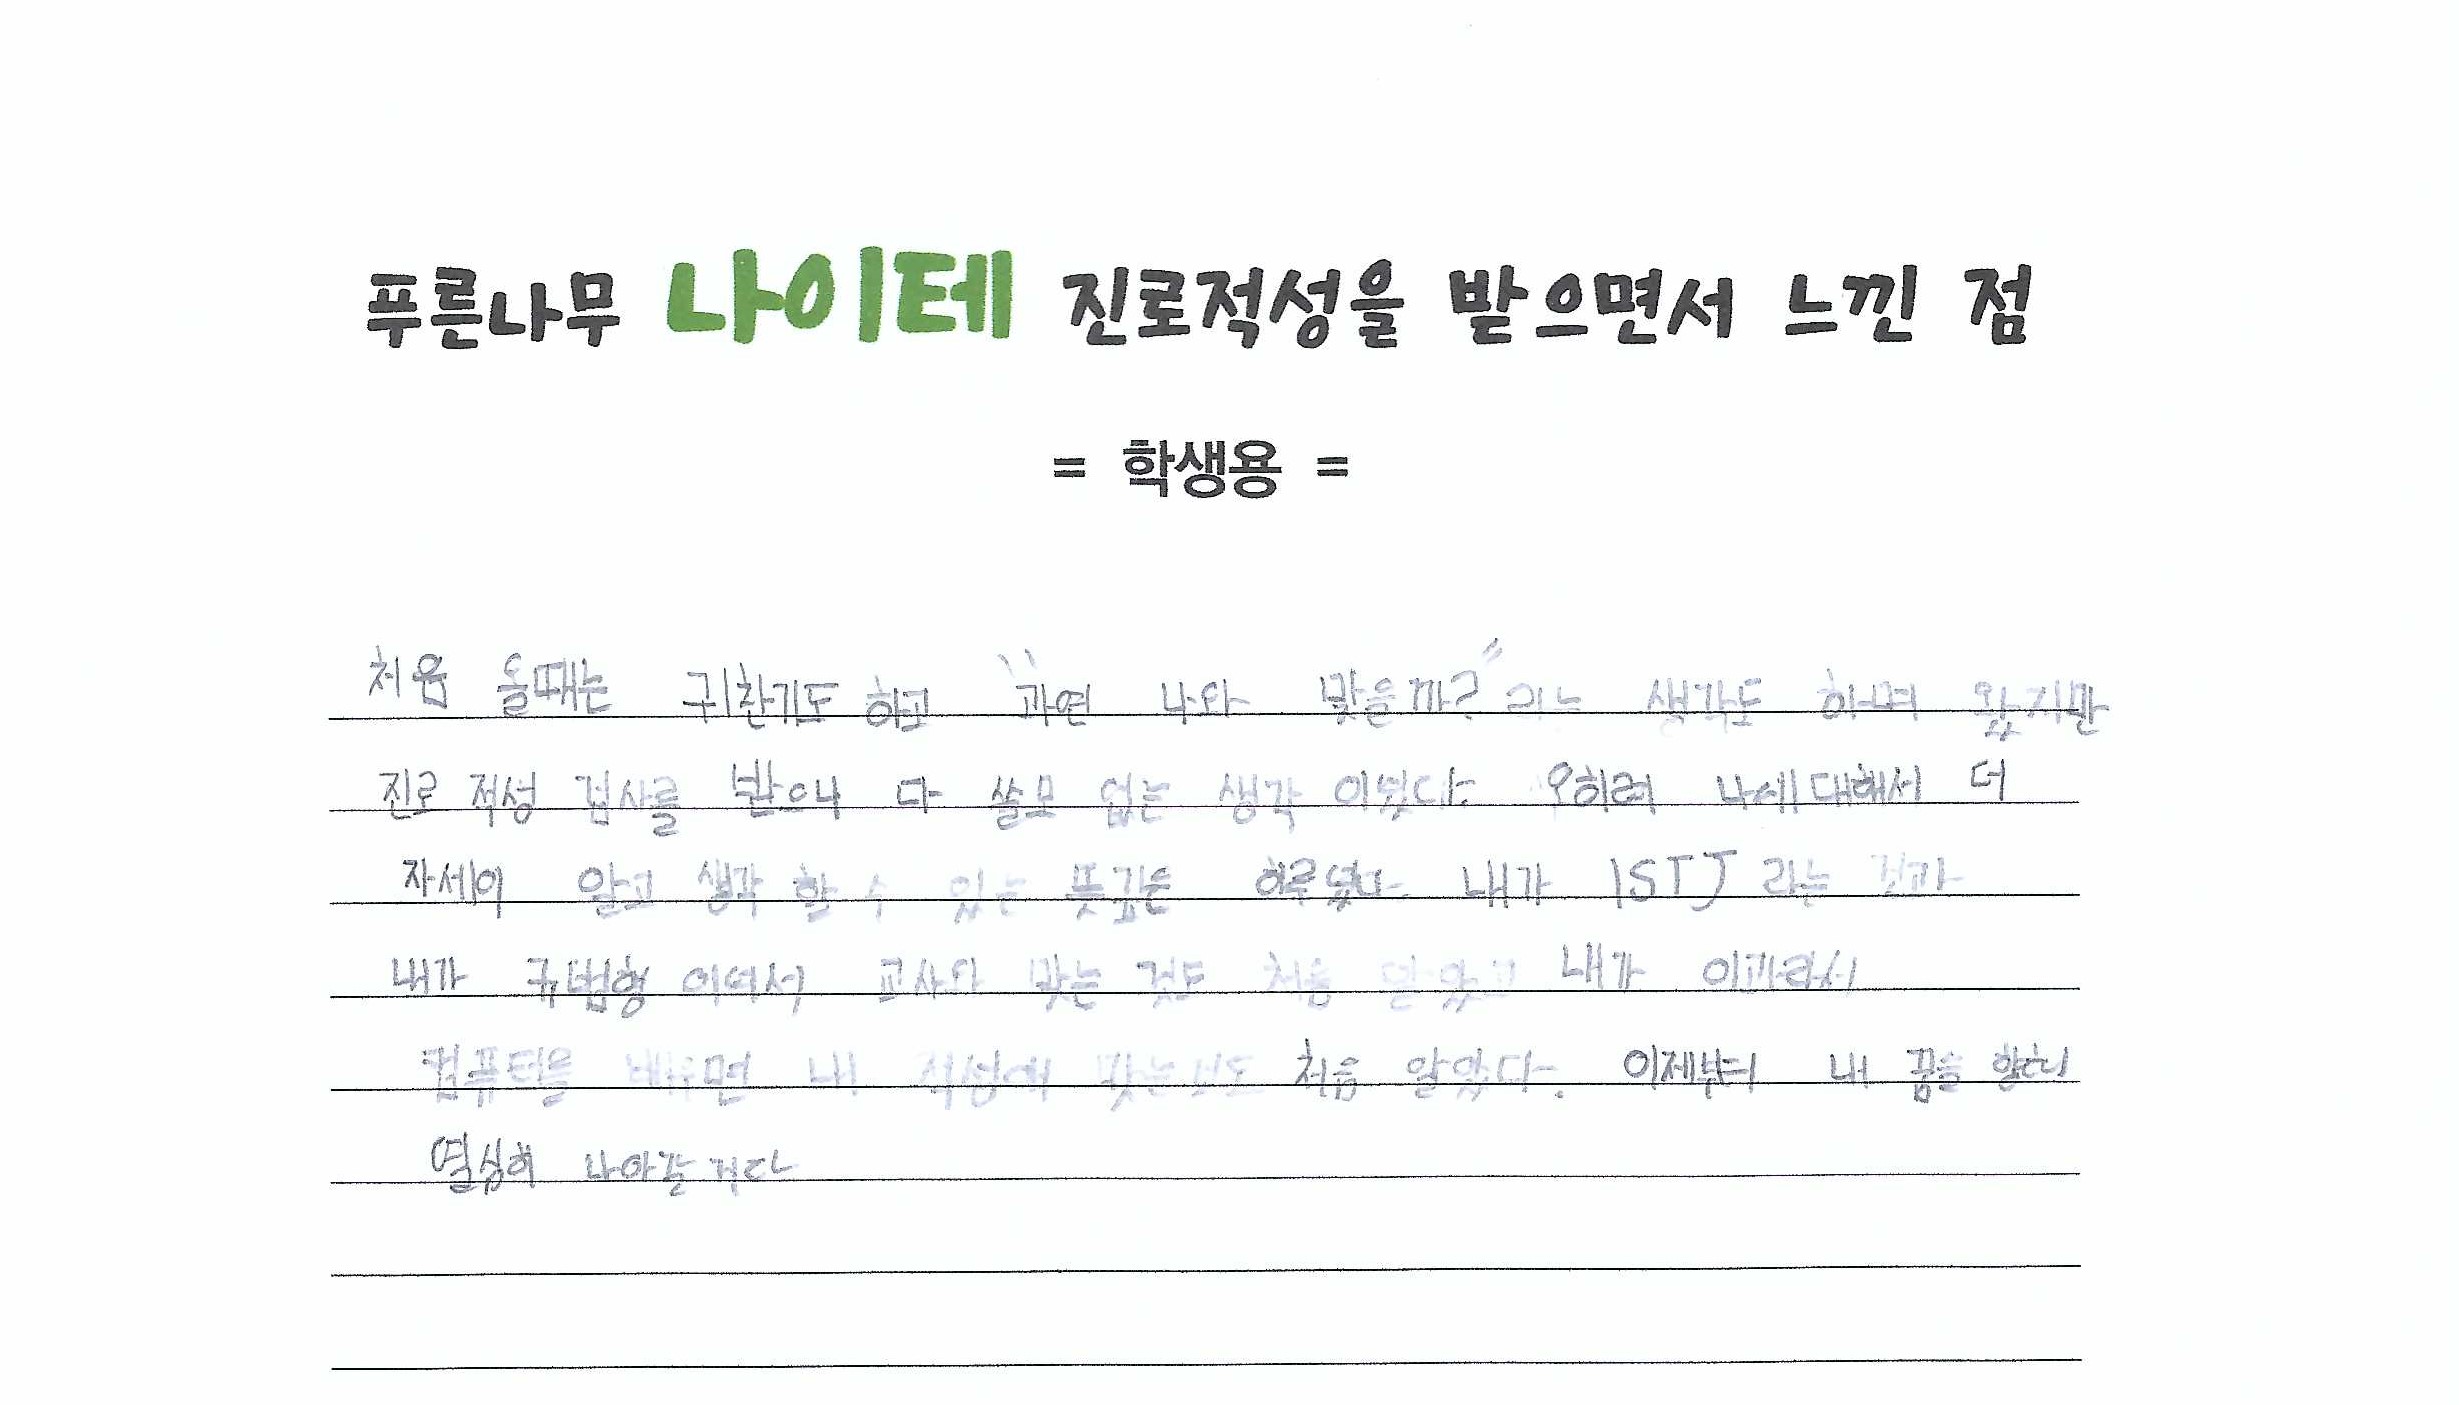 푸른나무 나이테 진로적성을 받으면서 느낀 점
= 학생용 =
처음 올때는 귀찮기도 하고 "과연 나와 맞을까?" 라는 생각도 하며 왔지만
진로 적성 검사를 받으니 다 쓸모 없는 생각 이었다 오히려 나에대해서 더
자세이 알고 생각 할 수 있는 뜻깊은 하루였다 내가 ISTJ 라는 것과
내가 규범형 이여서 교사와 맞는 것도 처음 알았고 내가 이과라서
컴퓨터를 배우면 내 적성에 맞는 처음 알았다. 이제부터 내 꿈을 향해
열심히 나아갈 거다